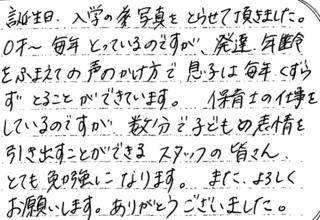 誕生日、入学の為写真をとらせて頂きました。
0才～毎年とっているのですが、発達、年齢
をふまえての声のかけ方で息子は毎年くずら
ずとることができています。 保育士の仕事を
しているのですが、数分で子どもの表情を
引き出すことができるスタッフの皆さん、
とても勉強になります。 また、よろしく
お願いします。ありがとうございました。